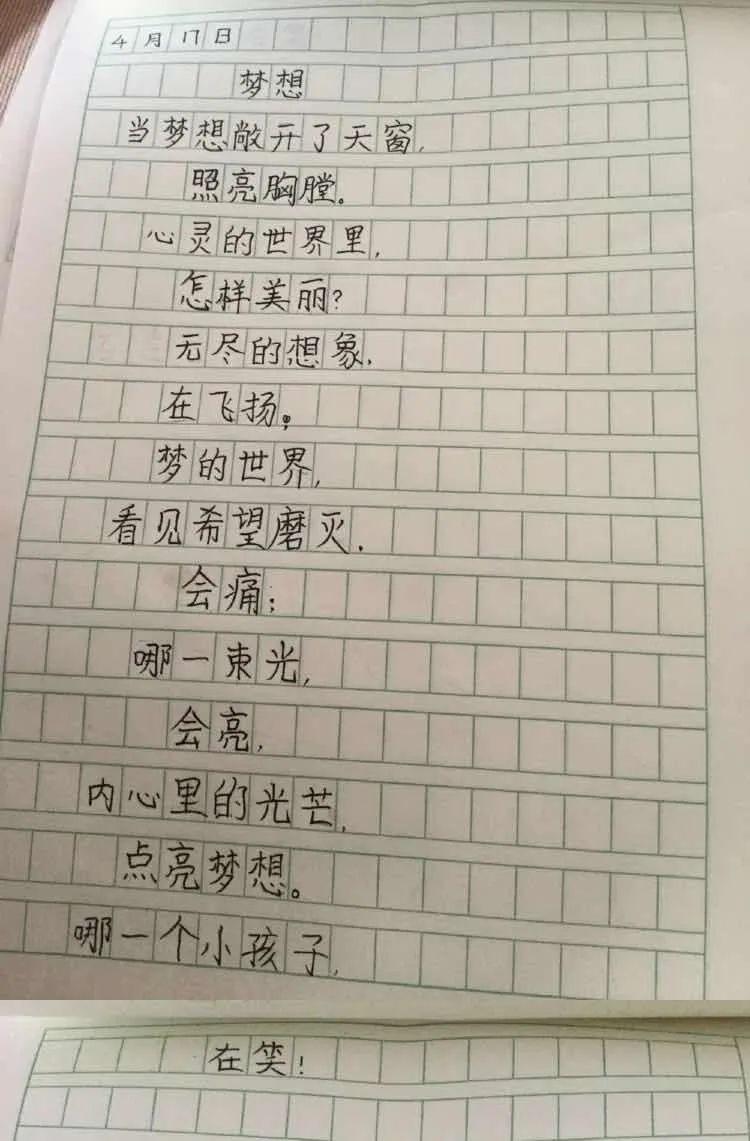 4月17日
梦想
当梦想敞开了天窗,
照亮胸膛。
心灵的世界里,
怎样美丽?
无尽的想象,
在飞扬。
梦的世界,
看见希望磨灭,
会痛;
哪一束光,
会亮,
内心里的光芒,
点亮梦想。
哪一个小孩子,
在笑!